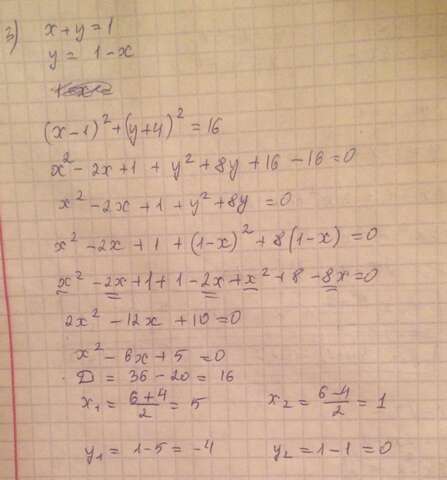 3) x + y = 1
y = 1 - x
(x-1)² + (y+4)² = 16
x² - 2x + 1 + y² + 8y + 16 - 16 = 0
x² - 2x + 1 + y² + 8y = 0
x² - 2x + 1 + (1-x)² + 8(1-x) = 0
x² - 2x + 1 + 1 - 2x + x² + 8 - 8x = 0
2x² - 12x + 10 = 0
x² - 6x + 5 = 0
D = 36 - 20 = 16
x₁ = (6+4)/2 = 5 x₂ = (6-4)/2 = 1
y₁ = 1-5 = -4 y₂ = 1-1 = 0